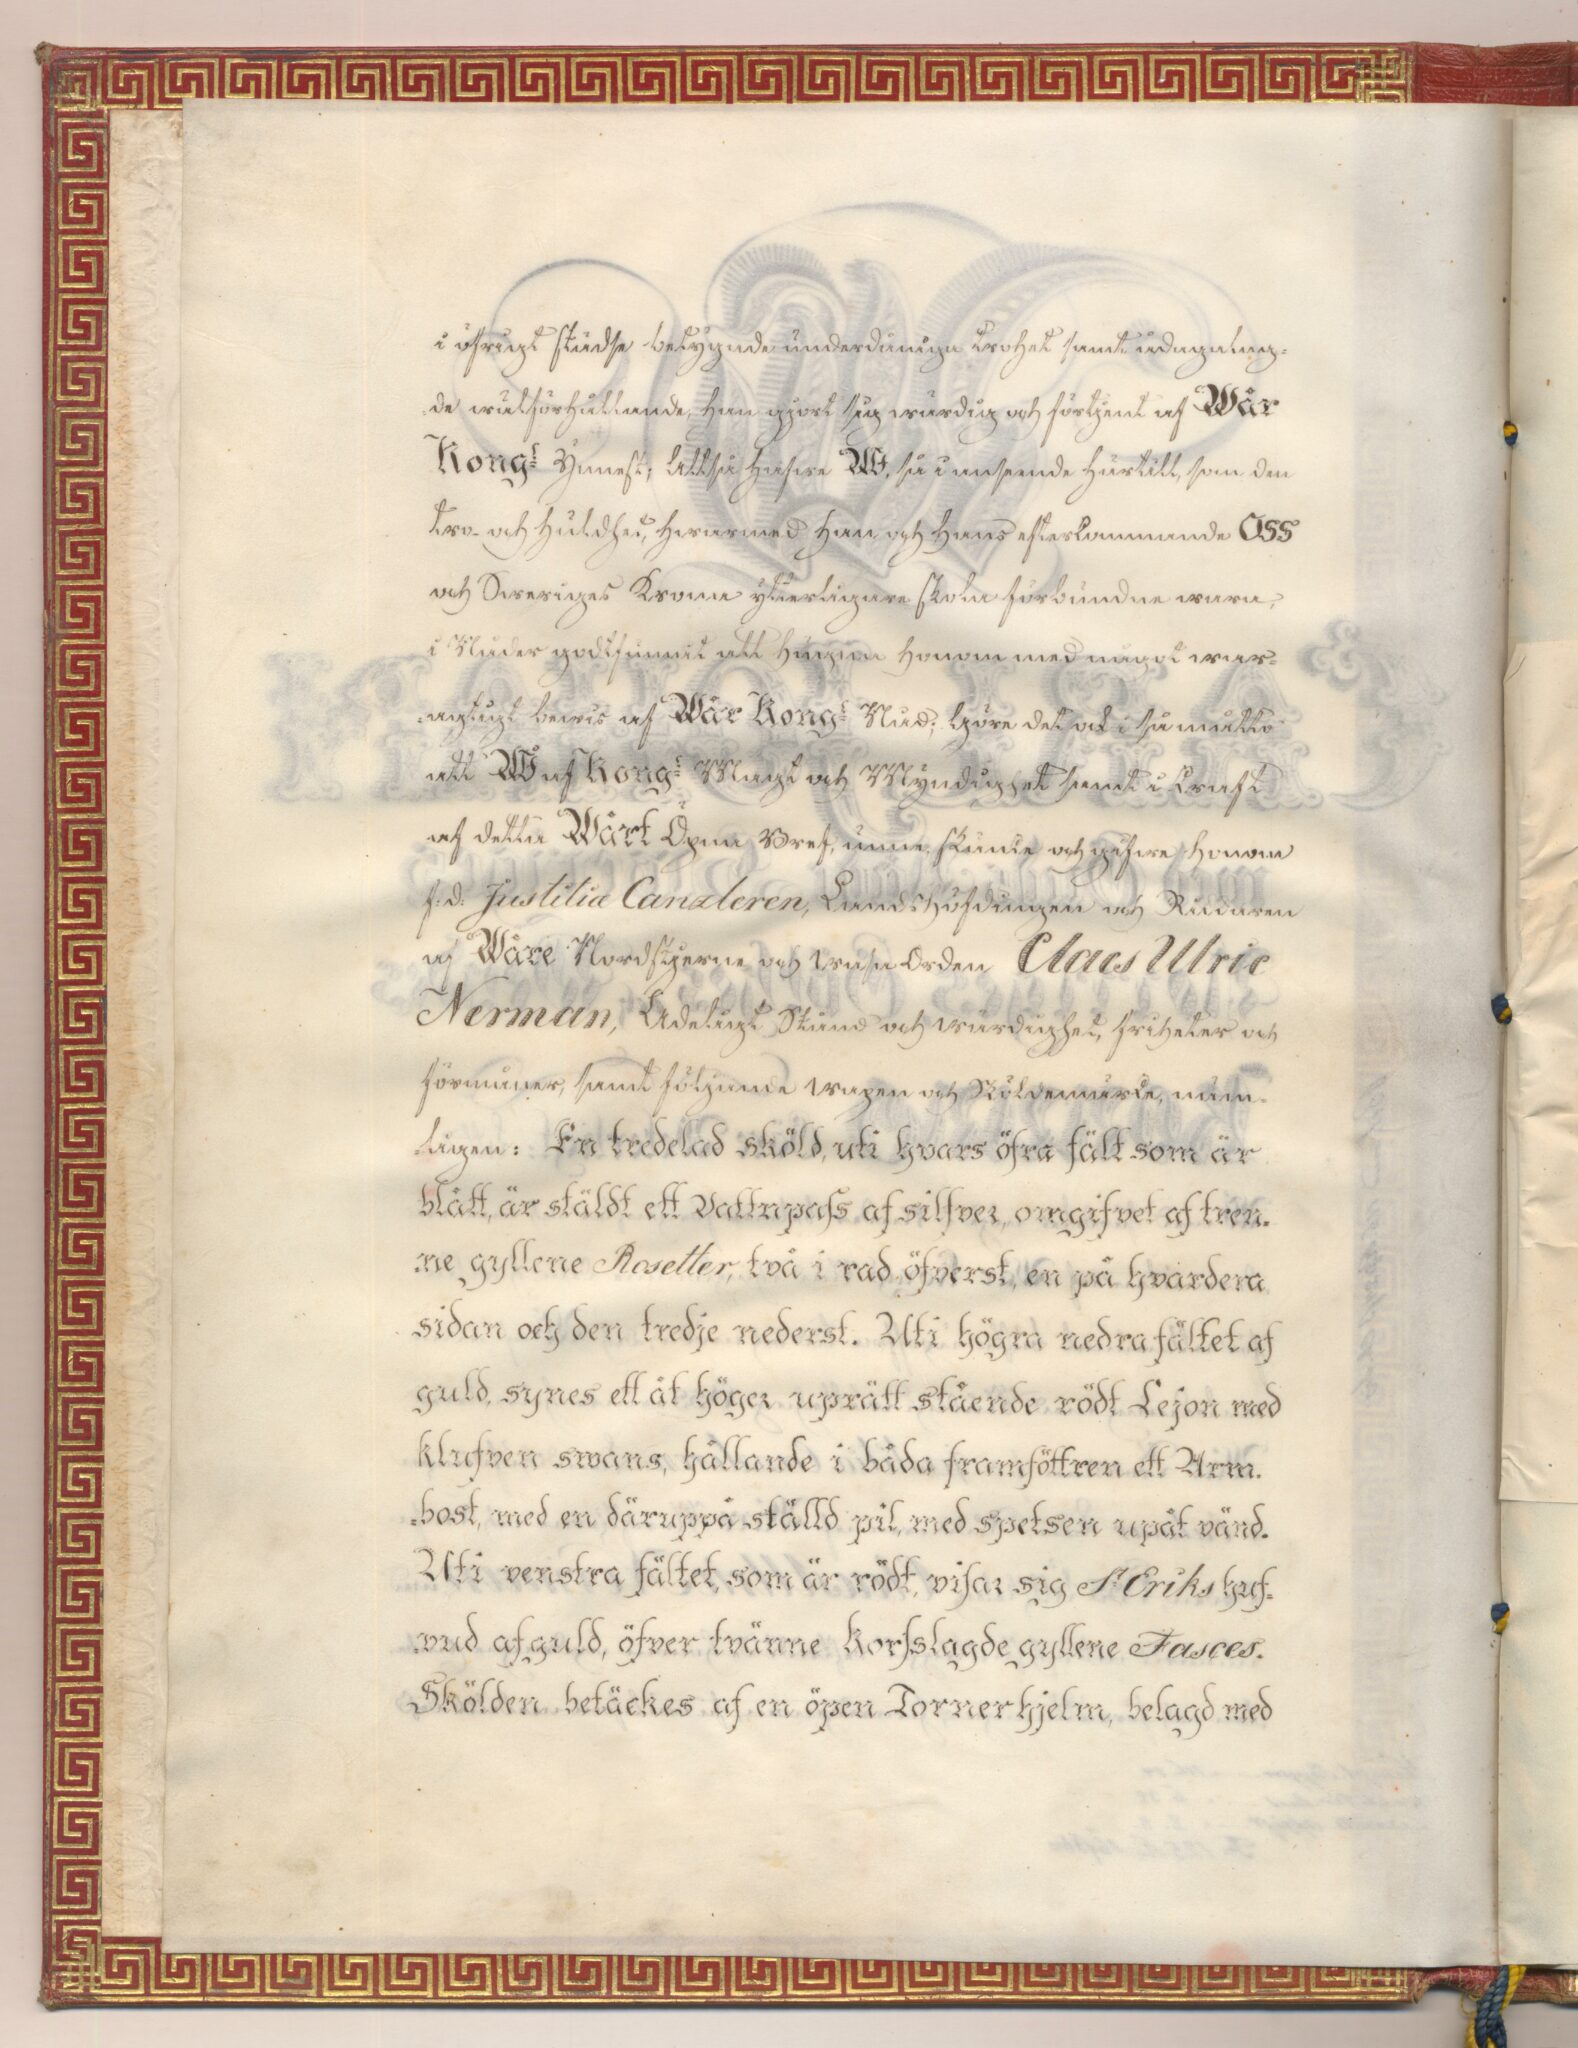 i öfrigt städse betygade underdåniga trohet samt ådagalag-
de wälförhållande, han gjort sig wärdig och förtjent af Wår
Kongl. Ynnest; Alltså hafwe Wi, så i anseende härtill, som den
tro- och huldhet, hwarmed han och hans efterkommande Oss
och Sweriges Krona ytterligare skola förbundne wara,
i Nåder godtfunnit att hugna honom med något war-
-agtigt bewis af Wår Kongl. Nåd; Göre det ock i så måtto
att Wi af Kongl. Magt och Myndighet samt i kraft
af detta Wårt Öpna Bref, unne, skänke och gifwe honom
f.d. Justitiæ Canzleren, Landshöfdingen och Riddaren
af Wåre Nordstjerne och Wasa Orden Claes Ulric
Nerman, Adeligt Stånd och wärdighet, friheter och
förmåner, samt följande wapen och Sköldemärke, näm-
-ligen: En tredelad sköld, uti hvars öfra fält som är
blått, är stäldt ett Vattupass af silfver, omgifvet af tren-
-ne gyllene Rosetter, två i rad öfverst, en på hvardera
sidan och den tredje nederst. Uti högra nedra fältet af
guld, synes ett åt höger uprätt stående rödt Lejon med
klufven swans, hållande i båda framföttren ett Arm-
-bost, med en däruppå ställd pil, med spetsen upåt vänd.
Uti venstra fältet, som är rödt, visar sig St Eriks huf-
-vud af guld, öfver tvänne korsslagde gyllene Fasces.
Skölden betäckes af en öpen Tornerhjelm, belagd med